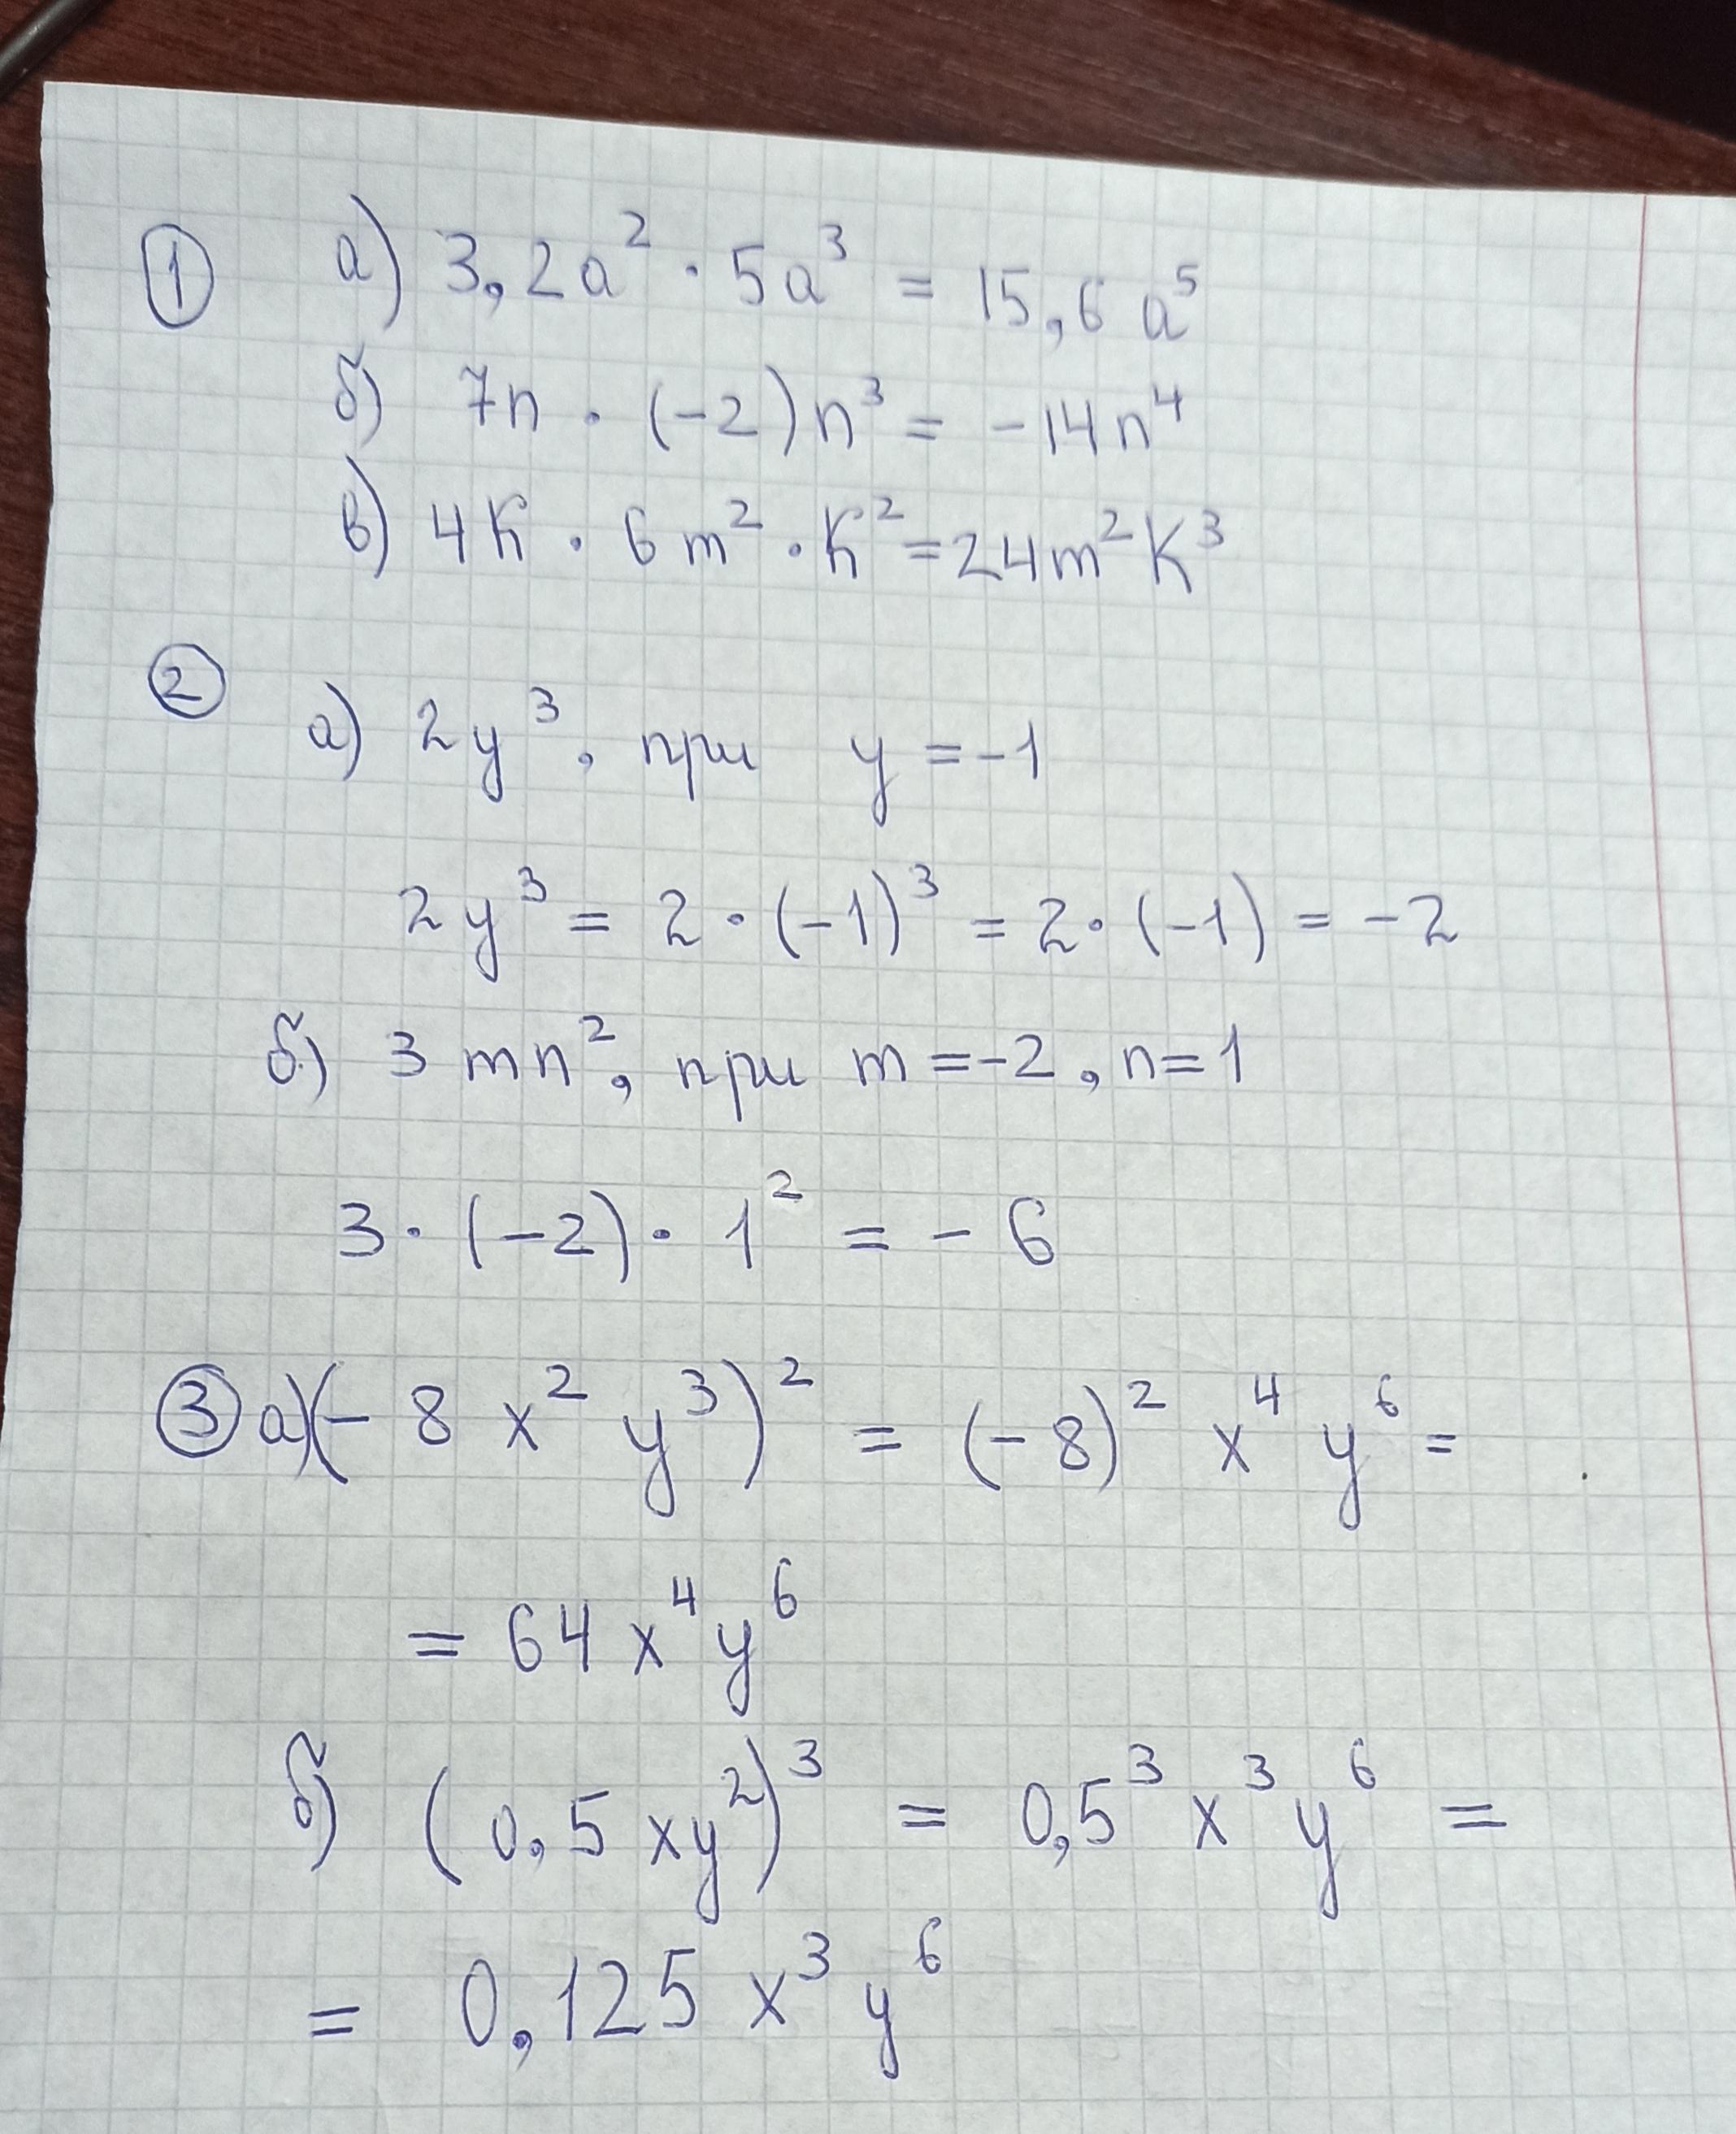 ① а) 3,2a² · 5a³ = 15,6 a⁵
б) 7n · (-2)n³ = -14n⁴
в) 4к · 6m² · к² = 24m²к³
②
а) 2y³, при y = -1
2y³ = 2 · (-1)³ = 2 · (-1) = -2
б) 3 mn², при m = -2, n = 1
3 · (-2) · 1² = - 6
③ а) (- 8 x² y³)² = (- 8)² x⁴ y⁶ =
= 64 x⁴ y⁶
б) (0,5 xy²)³ = 0,5³ x³ y⁶ =
= 0,125 x³ y⁶